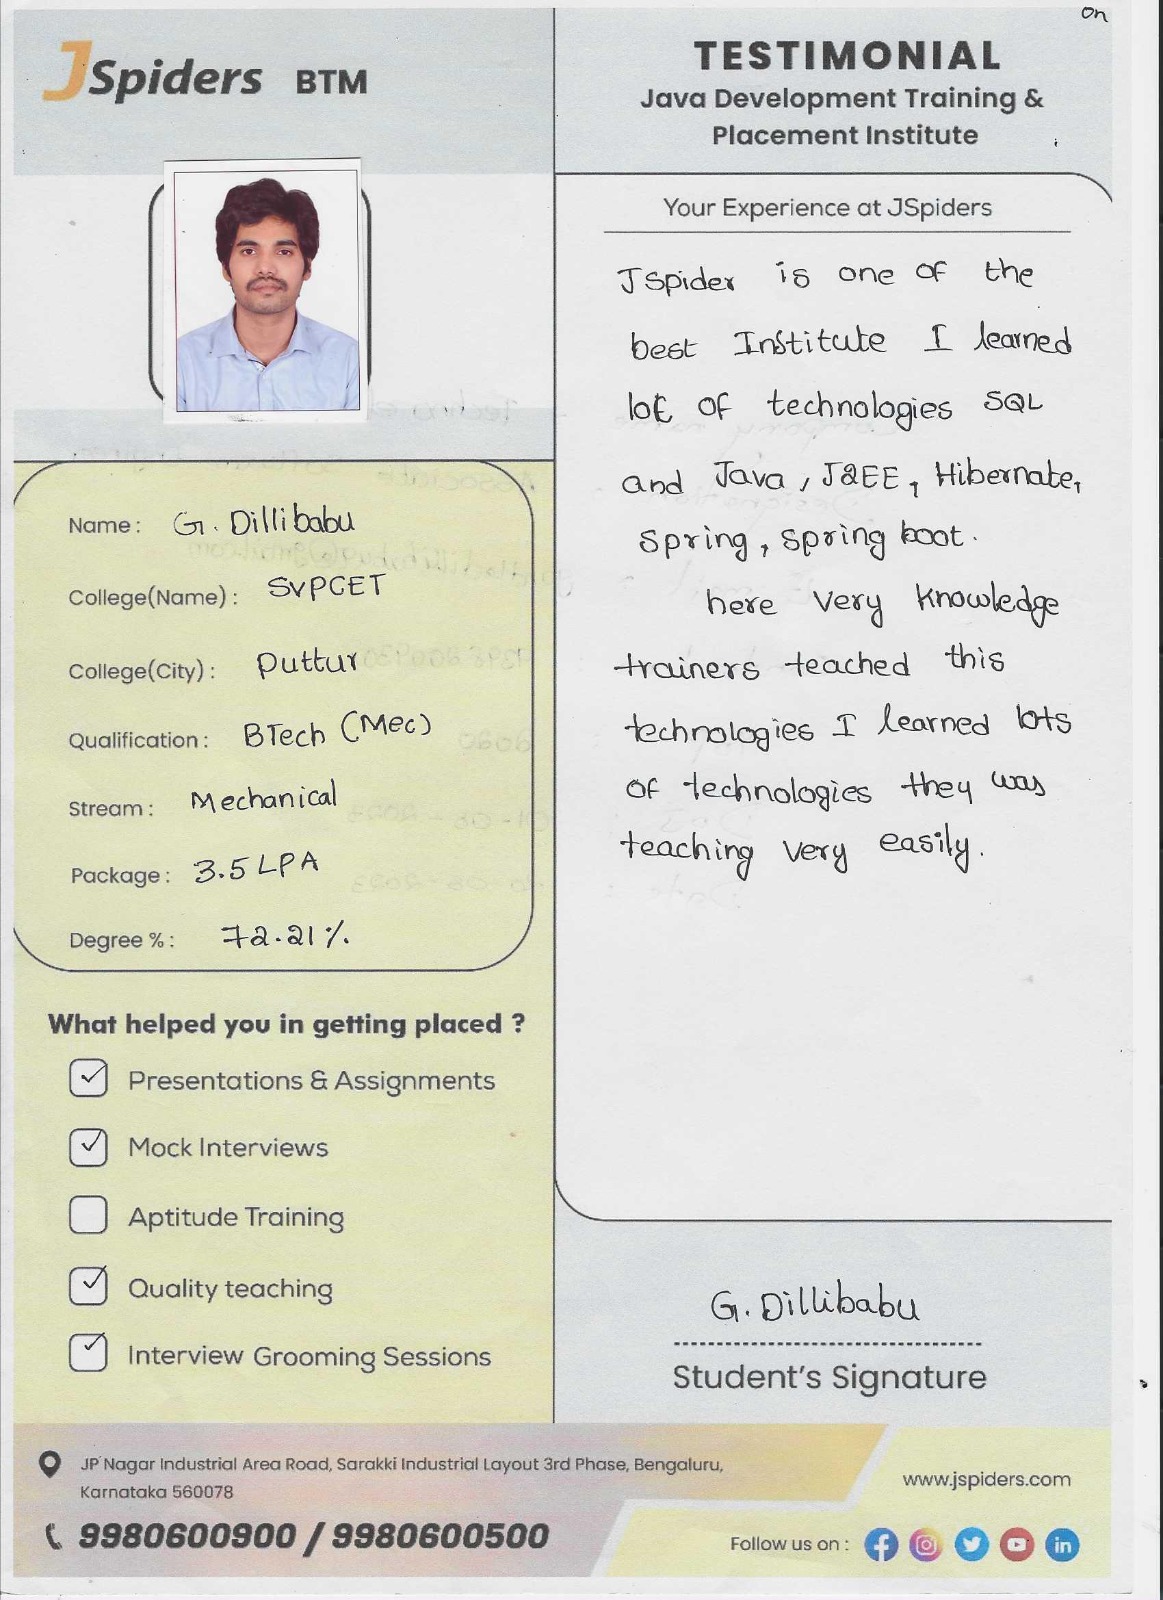 on
JSpiders BTM
TESTIMONIAL
Java Development Training &
Placement Institute
Your Experience at JSpiders
JSpider is one of the
best Institute I learned
lot of technologies SQL
and Java, J2EE, Hibernate,
spring, spring boot.
here very knowledge
trainers teached this
technologies I learned lots
of technologies they was
teaching very easily.
Name: G. Dillibabu
College(Name): SVPCET
College(City): puttur
Qualification: BTech (Mec)
Stream: Mechanical
Package: 3.5 LPA
Degree %: 72.21%
What helped you in getting placed ?
Presentations & Assignments
Mock Interviews
Aptitude Training
Quality teaching
Interview Grooming Sessions
G. Dillibabu
Student's Signature
JP Nagar Industrial Area Road, Sarakki Industrial Layout 3rd Phase, Bengaluru,
Karnataka 560078
9980600900 / 9980600500
www.jspiders.com
Follow us on :